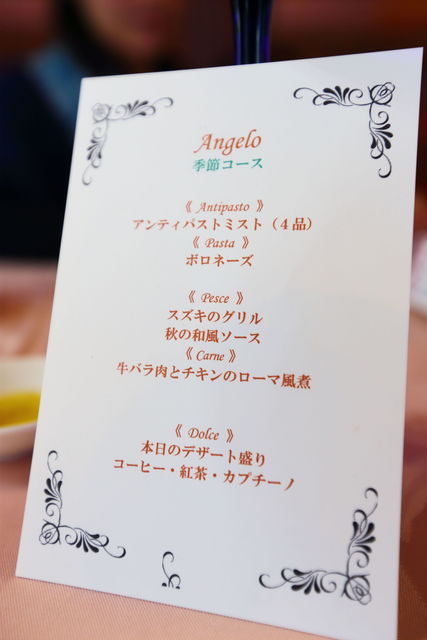 Angelo
季節コース
《 Antipasto 》
アンティパストミスト（４品）
《 Pasta 》
ボロネーズ
《 Pesce 》
スズキのグリル
秋の和風ソース
《 Carne 》
牛バラ肉とチキンのローマ風煮
《 Dolce 》
本日のデザート盛り
コーヒー・紅茶・カプチーノ